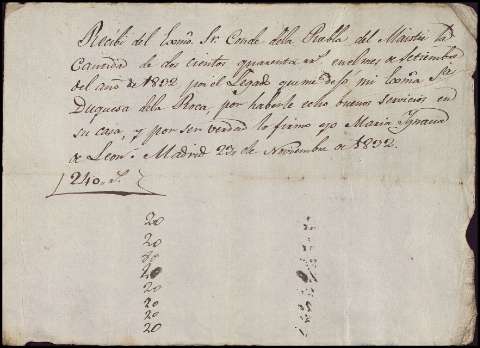 Recibi del Exmo. Sr. Conde dela Puebla del Maestre la
Cantidad de dos cientos quarenta rs. en el mes de Setiembre
del año de 1832 por el Legado que me dejó mi Exma. Sa.
Duquesa dela Roca, por haberle echo buenos servicios en
su casa, y por ser verdad lo firmo yo Maria Ygnacia
de Leon. Madrid 23 de Noviembre de 1832.
240 rs.
20
20
20
20
20
20
20
20